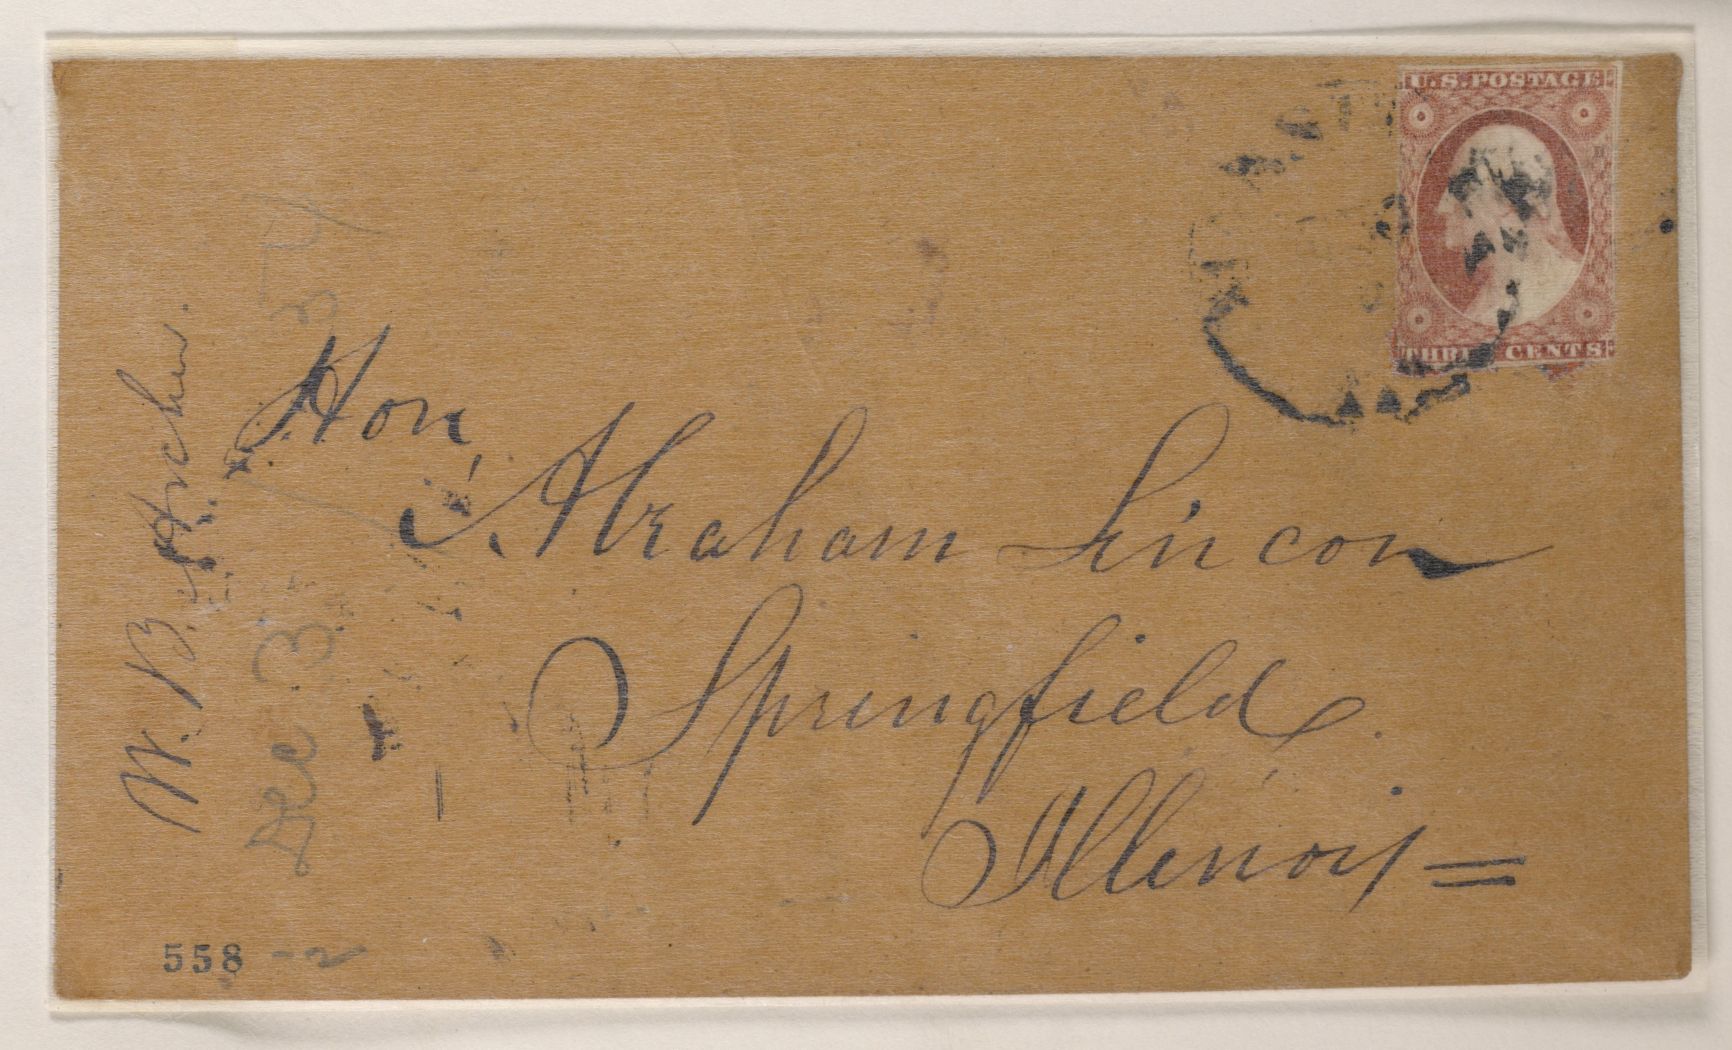 U.S. POSTAGE
THREE CENTS
Hon
Abraham Lincon
Springfield
Illinois =
W. B. Archer.
Dec 3
558 - 2